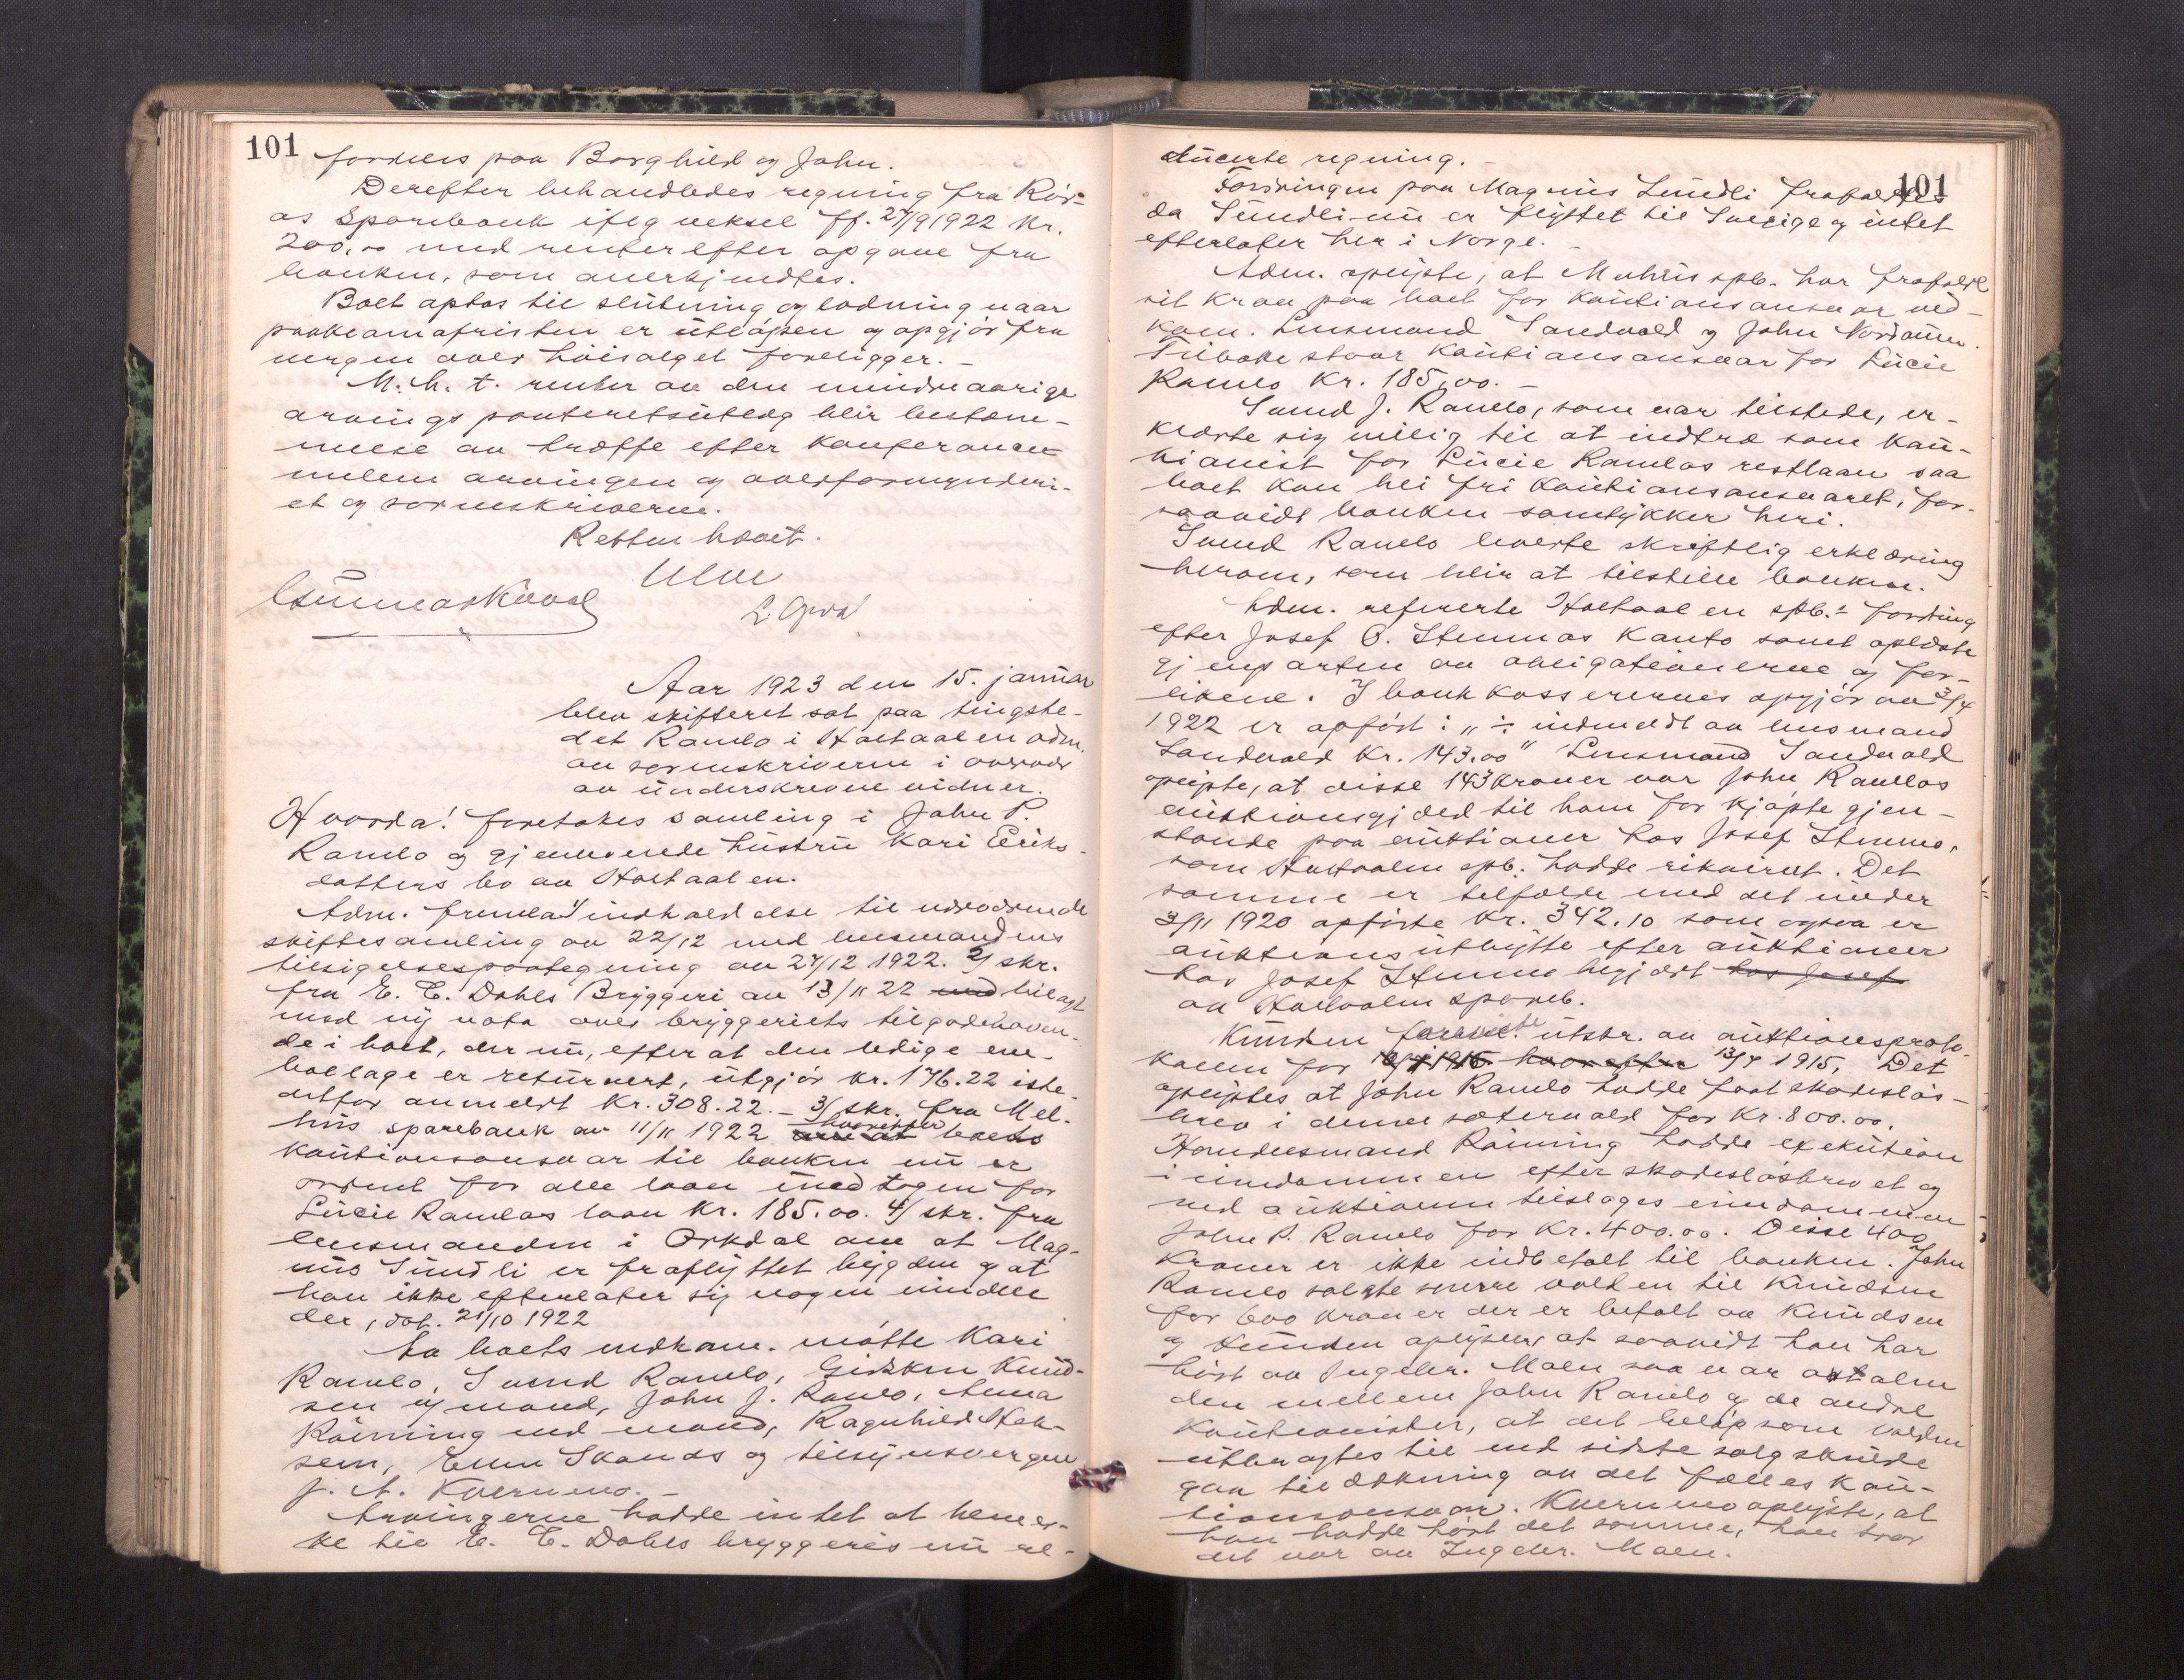 101
fordeles paa Borghild og John.
Derefter behandledes regning fra Rør-
os Sparebank iflg veksel ff. 27/9 1922 kr.
200,00 med renter efter opgave fra
banken, som anerkjendtes.
Boet optas til slutning og lodning naar
proklamafristen er utløpen og opgjør fra
vergen over høisalget foreligger. -
M. h. t. renter av den mindreaarige
arvings panteretsutlæg blir bestem-
melse av træffe efter konferance
mellem arvingen og overformynderi-
et og sorenskriveren.
Retten hævet.
Gunnar Kvaal
Aar 1923 den 15. januar
blev skifteret sat paa tingste-
det Ramlo i Holtaalen adm.
av sorenskriveren i overvær
av underskrevne vidner.
Hvorda! foretokes samling i John P.
Ramlo og gjenlevende hustru Kari Eriks-
datters bo av Holtaalen.
Adm. fremla 1/ indkaldelse til nærværende
skiftesamling av 22/12 med lensmandens
tilsigelsespaategning av 27/12 1922. 2/ skr.
fra E. C. Dahls Bryggeri av 13/11 22 med bilagt
med ny nota over bryggeriets tilgodehaven-
de i boet, der nu, efter at den ledige em-
ballage er returnert, utgjør kr. 176.22 iste-
detfor anmeldt kr. 308.22. - 3/ skr. fra Mel-
hus sparebank av 11/11 1922 hvorefter boets
kautionsansvar til banken nu er
ordnet for alle laan undtagen for
Lucie Ramlos laan kr. 185.00. 4/ skr. fra
lensmanden i Orkdal om at Mag-
nus Sundli er fraflyttet bygden og at
han ikke efterlater sig nogen midler
der, dat. 21/10 1922
Av boets vedkom. møtte Kari
Ramlo, Svend Ramlo, Gidsken Knud-
sen og mand, John J. Ramlo, Anna
Røinning med mand, Ragnhild Hok-
sem, Elen Skands og tilsynsvergen
J. A. Kvernmo. -
Arvingerne hadde intet at bemer-
ke til E. C. Dahls bryggeris nu re-
101
ducerte regning. -
Fordringen paa Magnus Sundli frafaldtes
da Sundli nu er flyttet til Sverige og intet
efterlater her i Norge. -
Adm. oplyste, at Melhus spb. har frafaldt
sit krav paa boet for kautionsansvar ved-
kom. lensmand Sandvold og John Nordaune.
Tilbake staar kautionsansvar for Lucie
Ramlo kr. 185,00. -
Svend J. Ramlo, som var tilstede, er-
klærte sig villig til at indtræ som kau-
tionist for Lucie Ramlos restlaan saa
boet kan bli fri kautionsansvaret, for-
saavidt banken samtykker heri.
Svend Ramlo leverte skriftlig erklæring
herom, som blir at tilstille banken.
Adm. refererte Holtaalen spb.s fordring
efter Josef O. Stenmos konto samt oplæste
gjenparten av obligationerne og for-
likene. I bankkassererens opgjør av 3/4
1922 er opført: „÷ indmeldt av lensmand
Sandvold kr. 143.00" Lensmand Sandvold
oplyste, at disse 143 kroner var John Ramlos
auktionsgjæld til ham for kjøpte gjen-
stande paa auktioner hos Josef Stenmo,
som Holtaalen spb. hadde rikvirert. Det
samme er tilfælde med det under
3/11 1920 opførte kr. 342.10 som ogsaa er
auktionsutbytte efter auktioner
hos Josef Stenmo begjært hos Josef
av Holtaalen spareb.
utskr. av auktionsproto-
kollen for 13/7 1915. Det
oplystes at John Ramlo hadde faat skadesløs-
brev i denne sætervold for kr. 800.00.
Handelsmand Røinning hadde exekution
i eiendommen efter skadesløsbrevet og
ved auktionen tilslages eiendommen
John P. Ramlo for kr. 400.00. Disse 400
kroner er ikke indbetalt til banken. John
Ramlo solgte senere volden til Knudsen
for 600 kroner der er betalt av Knudsen
og oplyser, at saavidt han har
hørt av Ingebr. Moen saa var avtalen
den mellem John Ramlo og de andre
kautionister, at det beløp som volden
utbragtes til ved sidste salg skulde
gaa til dækning av det fælles kau-
tionsansvar. Kvernmo oplyste, at
han hadde hørt det samme, han tror
det var av Ingebr. Moen.